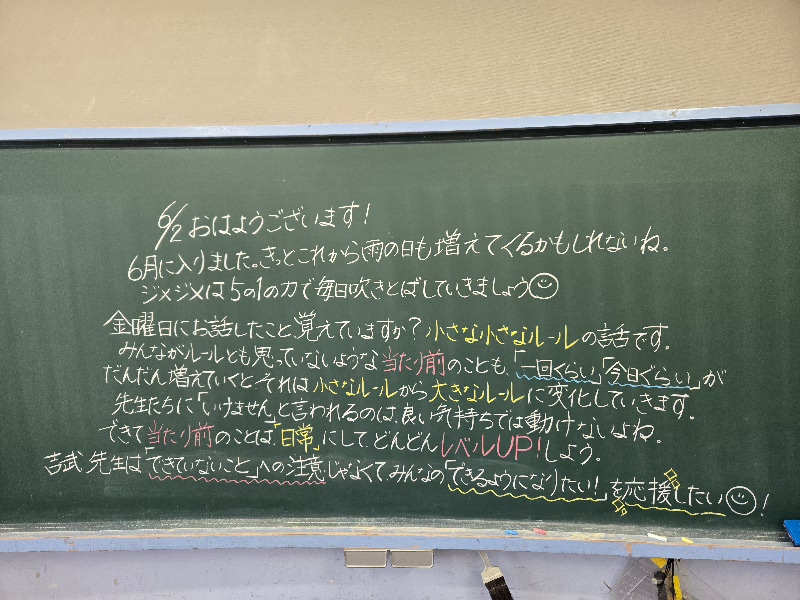 6/2 おはようございます!
6月に入りました。きっとこれから雨の日も増えてくるかもしれないね。
ジメジメは5の1の力で毎日吹きとばしていきましょう
金曜日にお話したこと覚えていますか?小さな小さなルールの話です。
みんながルールとも思っていないような当たり前のことも、「一回ぐらい」「今日ぐらい」が
だんだん増えていくとそれは小さなルールから大きなルールに変化していきます。
先生たちに「いけません」と言われるのは、良い気持ちでは動けないよね。
できて当たり前のことは「日常」にしてどんどんレベルUP!しよう。
吉武先生は「できていないこと」への注意じゃなくてみんなの「できるようになりたい!」を応援したい!